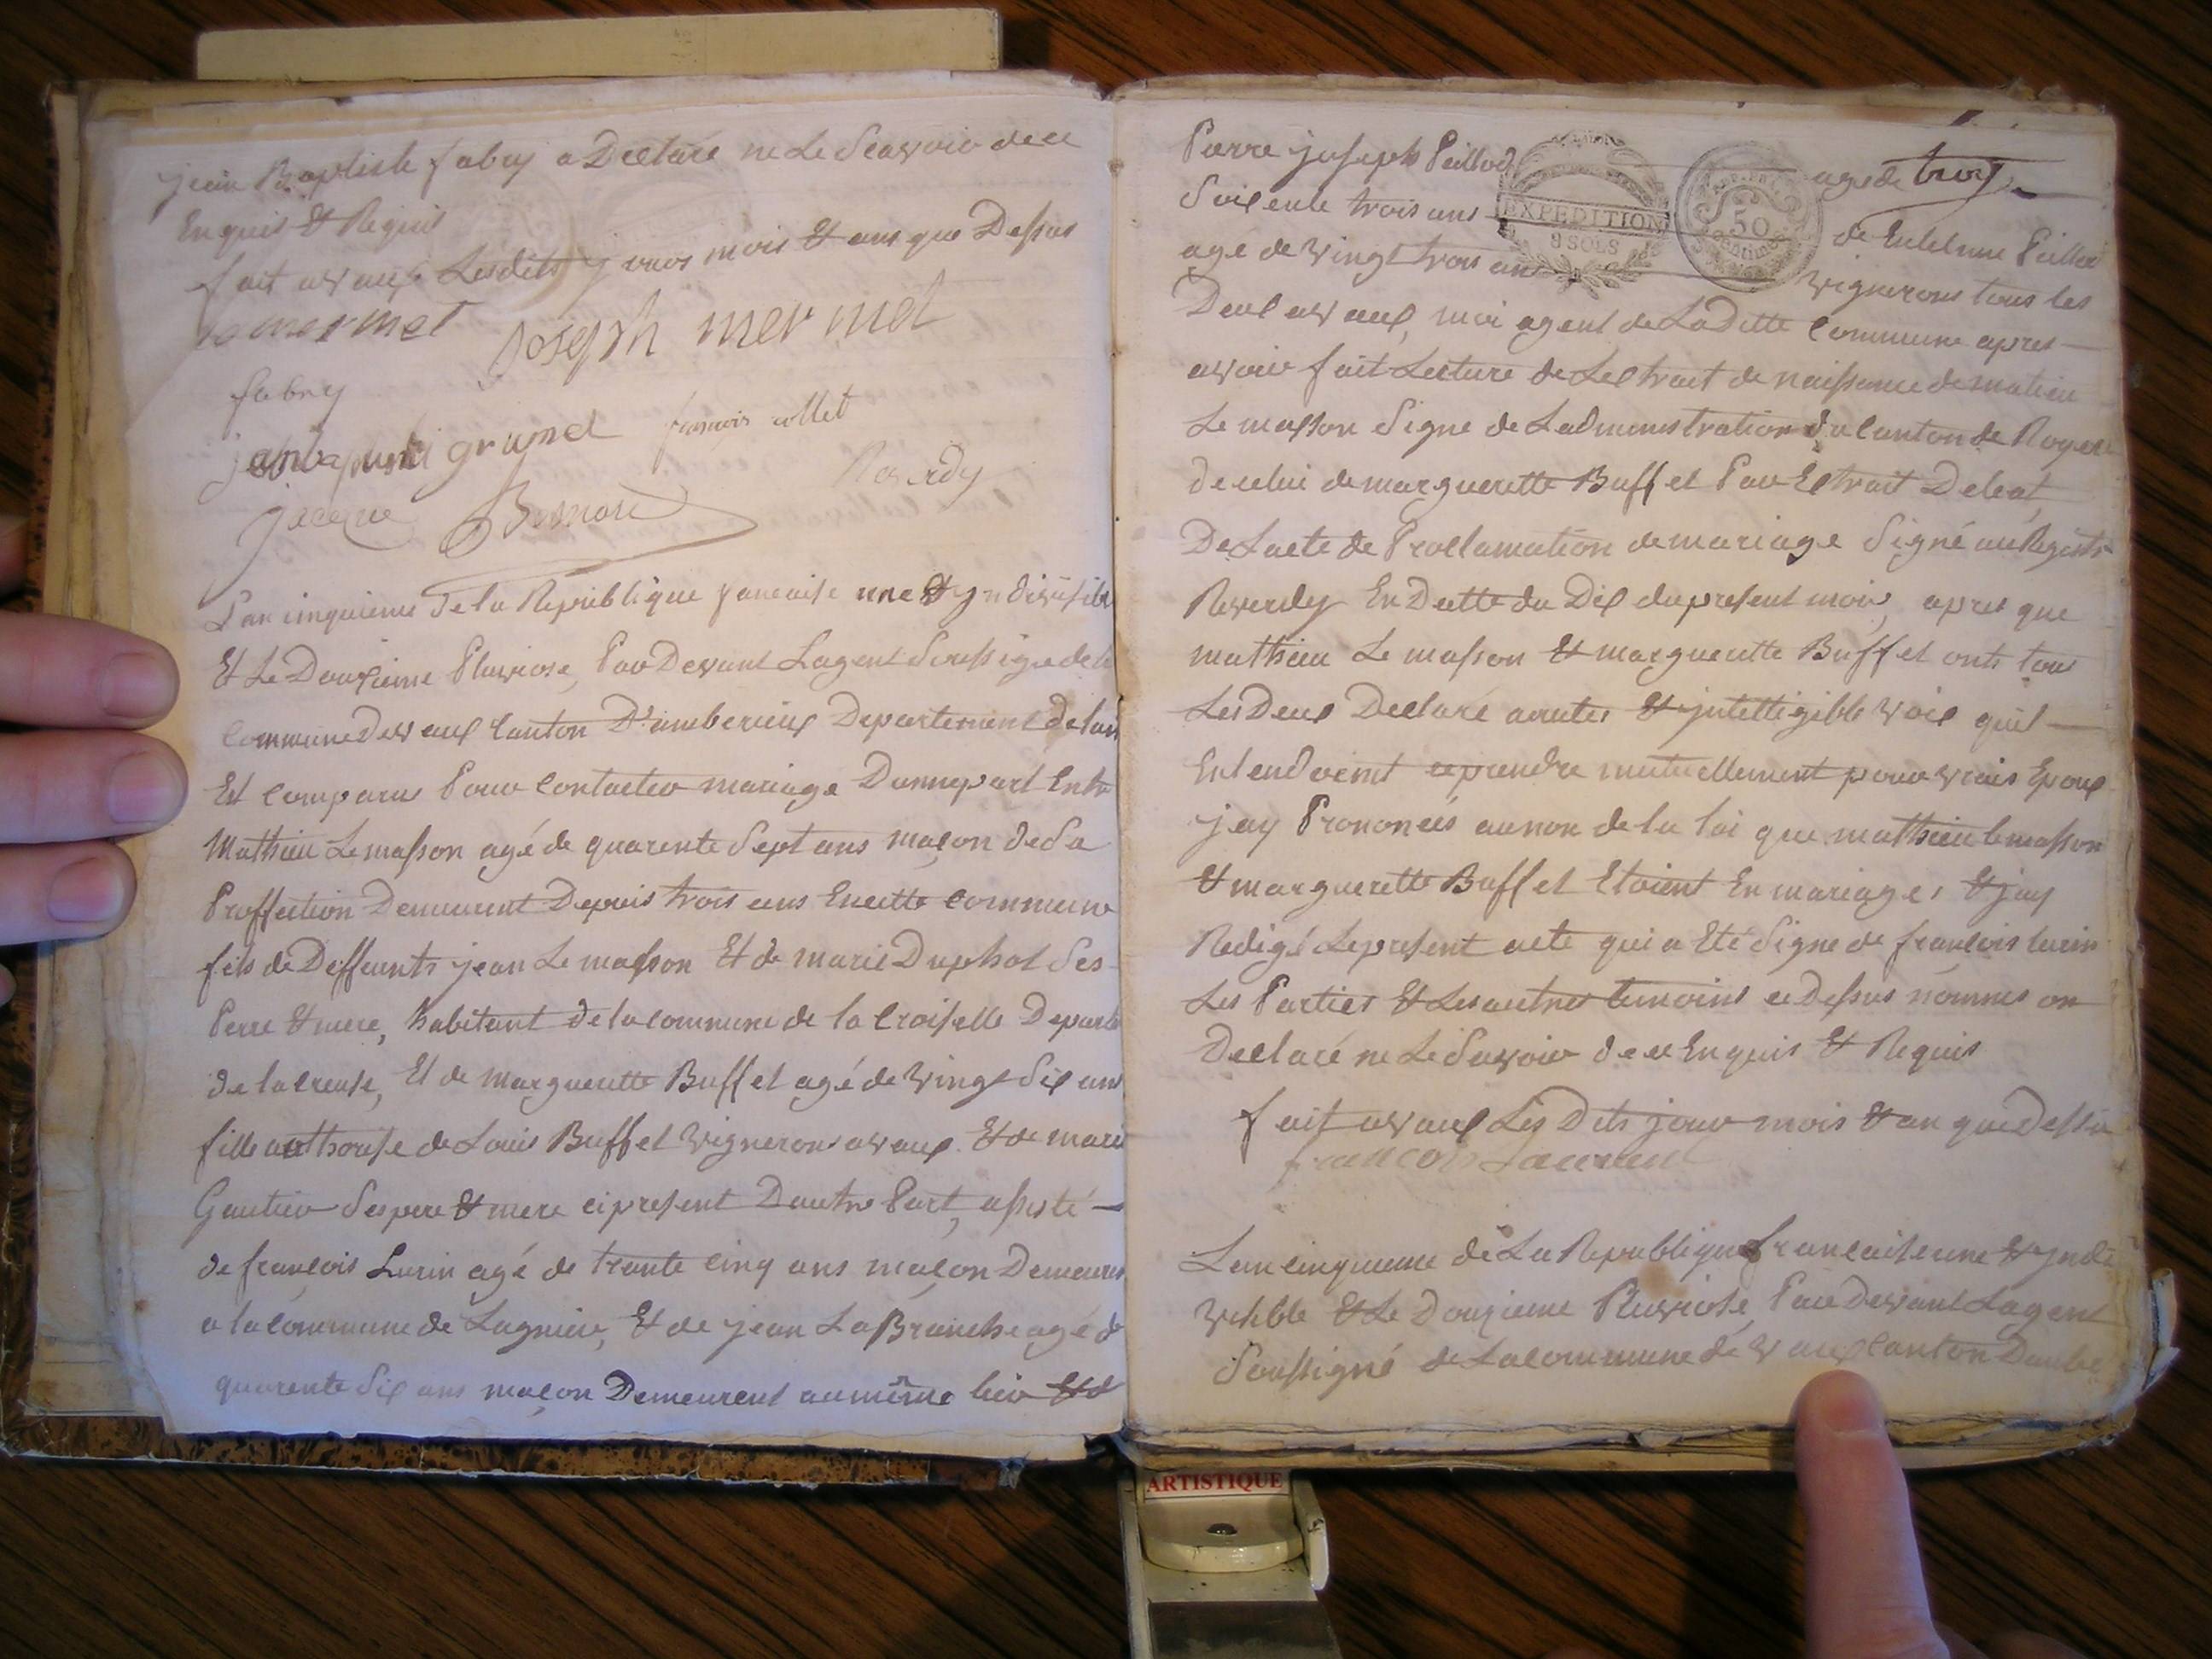 jean Baptiste fabry a Declaré ne Le Scavoir de ce
Enquis & Requis
fait a vaux Lesdits jours mois & ans que Dessus
mermet Joseph mermet
fabry
grumel françois collet
jacque Besnard Reverdy
L'an cinquieme de la Republique francaise une & yndivisible
Et Le Douzieme Pluviose, Par Devant Lagent Soussigné de la
Commune de vaux Canton D'amberieux Departement de lain
Est Comparus Pour Contacter mariage Dunnepart Entre
Mathieu Lemasson agé de quarente Sept ans maçon de Sa
Proffection Demeurent Depuis trois ans En cette Commune
fils de Deffunts jean Le masson Et de marie Duphot Ses
Perre & mere, habitant de la commune de la Croiselle Depart
de la creuse, Et de Marguerette Buffet agé de vingt Six ans
fille authorise de Louis Buffet vigneron a vaux Et de marie
Gautier Ses pere & mere ci present Dautre Part, assisté
de francois Lurin agé de trante cinq ans maçon Demeurent
a la commune de Lagnieu, Et de jean La Branche agé de
quarente Six ans maçon Demeurent au même lieu & d
Pierre joseph Peillod agé de trois
Soixente trois ans de Peillod
EXPEDITION
8 SOLS
50
centimes
agé de vingt trois ans vignerons tous les
Deux a vaux, moi agent de La Ditte Commune apres
avoir fait Lecture de Lextrait de naissance de matieu
Le masson Signe de Ladministration du Canton de Royere
de celui de marguerette Buffet Par Extrait
De Lacte de Proclamation de mariage Signé au Registre
Reverdy En Datte du Dix du present mois, apres que
mathieu Le masson & marguerette Buffet onts tous
Les Deux Declaré a autes & yntelligible voix quil
Entendoient ce prendre mutuellement pour vrais Epoux
jay Prononcés au non de la loi que mathieu lemasson
& marguerette Buffet Etoient En mariage, & jay
Redigé Le present acte qui a Eté Signe de francois lurin
Les Parties & Les autres temoins ci Dessus nommes on
Declaré ne Le Savoir de ce Enquis & Requis
fait a vaux Les Dits jour mois & an que Dessus
francois
Lan cinquieme de La Republique francaise une & yndi
visible & Le Douzieme Pluviose, Par Devant Lagent
Soussigné de La Commune de vaux Canton Dambe
ARTISTIQUE